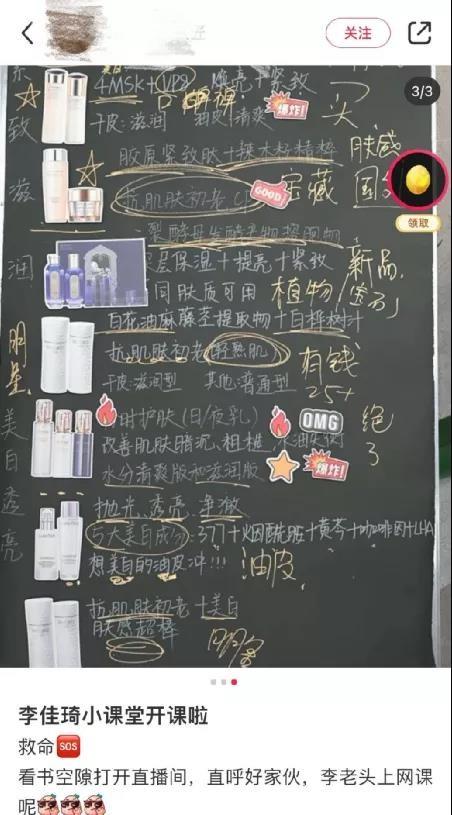 关注
3/3
4MSK+VP8
提亮+紧致
干皮:滋润 油皮:清爽
爆炸!
胶原紧致肽+辣木籽精粹
肤感
抗肌肤初老
GOOD!
宝藏
领取
二裂酵母发酵产物提取物
深层保湿+提亮+紧致
新品
同肤质可用
植物
白花油麻藤茎提取物+白桦树汁
抗肌肤初老(轻熟肌)
有钱
25+
干皮:滋润型 其他:普通型
时护肤(日/夜乳)
OMG
绝了
改善肌肤暗沉、粗糙
水油失衡
水分清爽版和滋润版
爆炸!
抛光、透亮、净澈
5大美白成分:377+烟酰胺+黄芩+咖啡因+LHA
想美白的油皮冲!!!
油皮
抗肌肤初老+美白
肤感超棒
致
滋
润
明星
美白透亮
李佳琦小课堂开课啦
救命SOS
看书空隙打开直播间，直呼好家伙，李老头上网课
呢